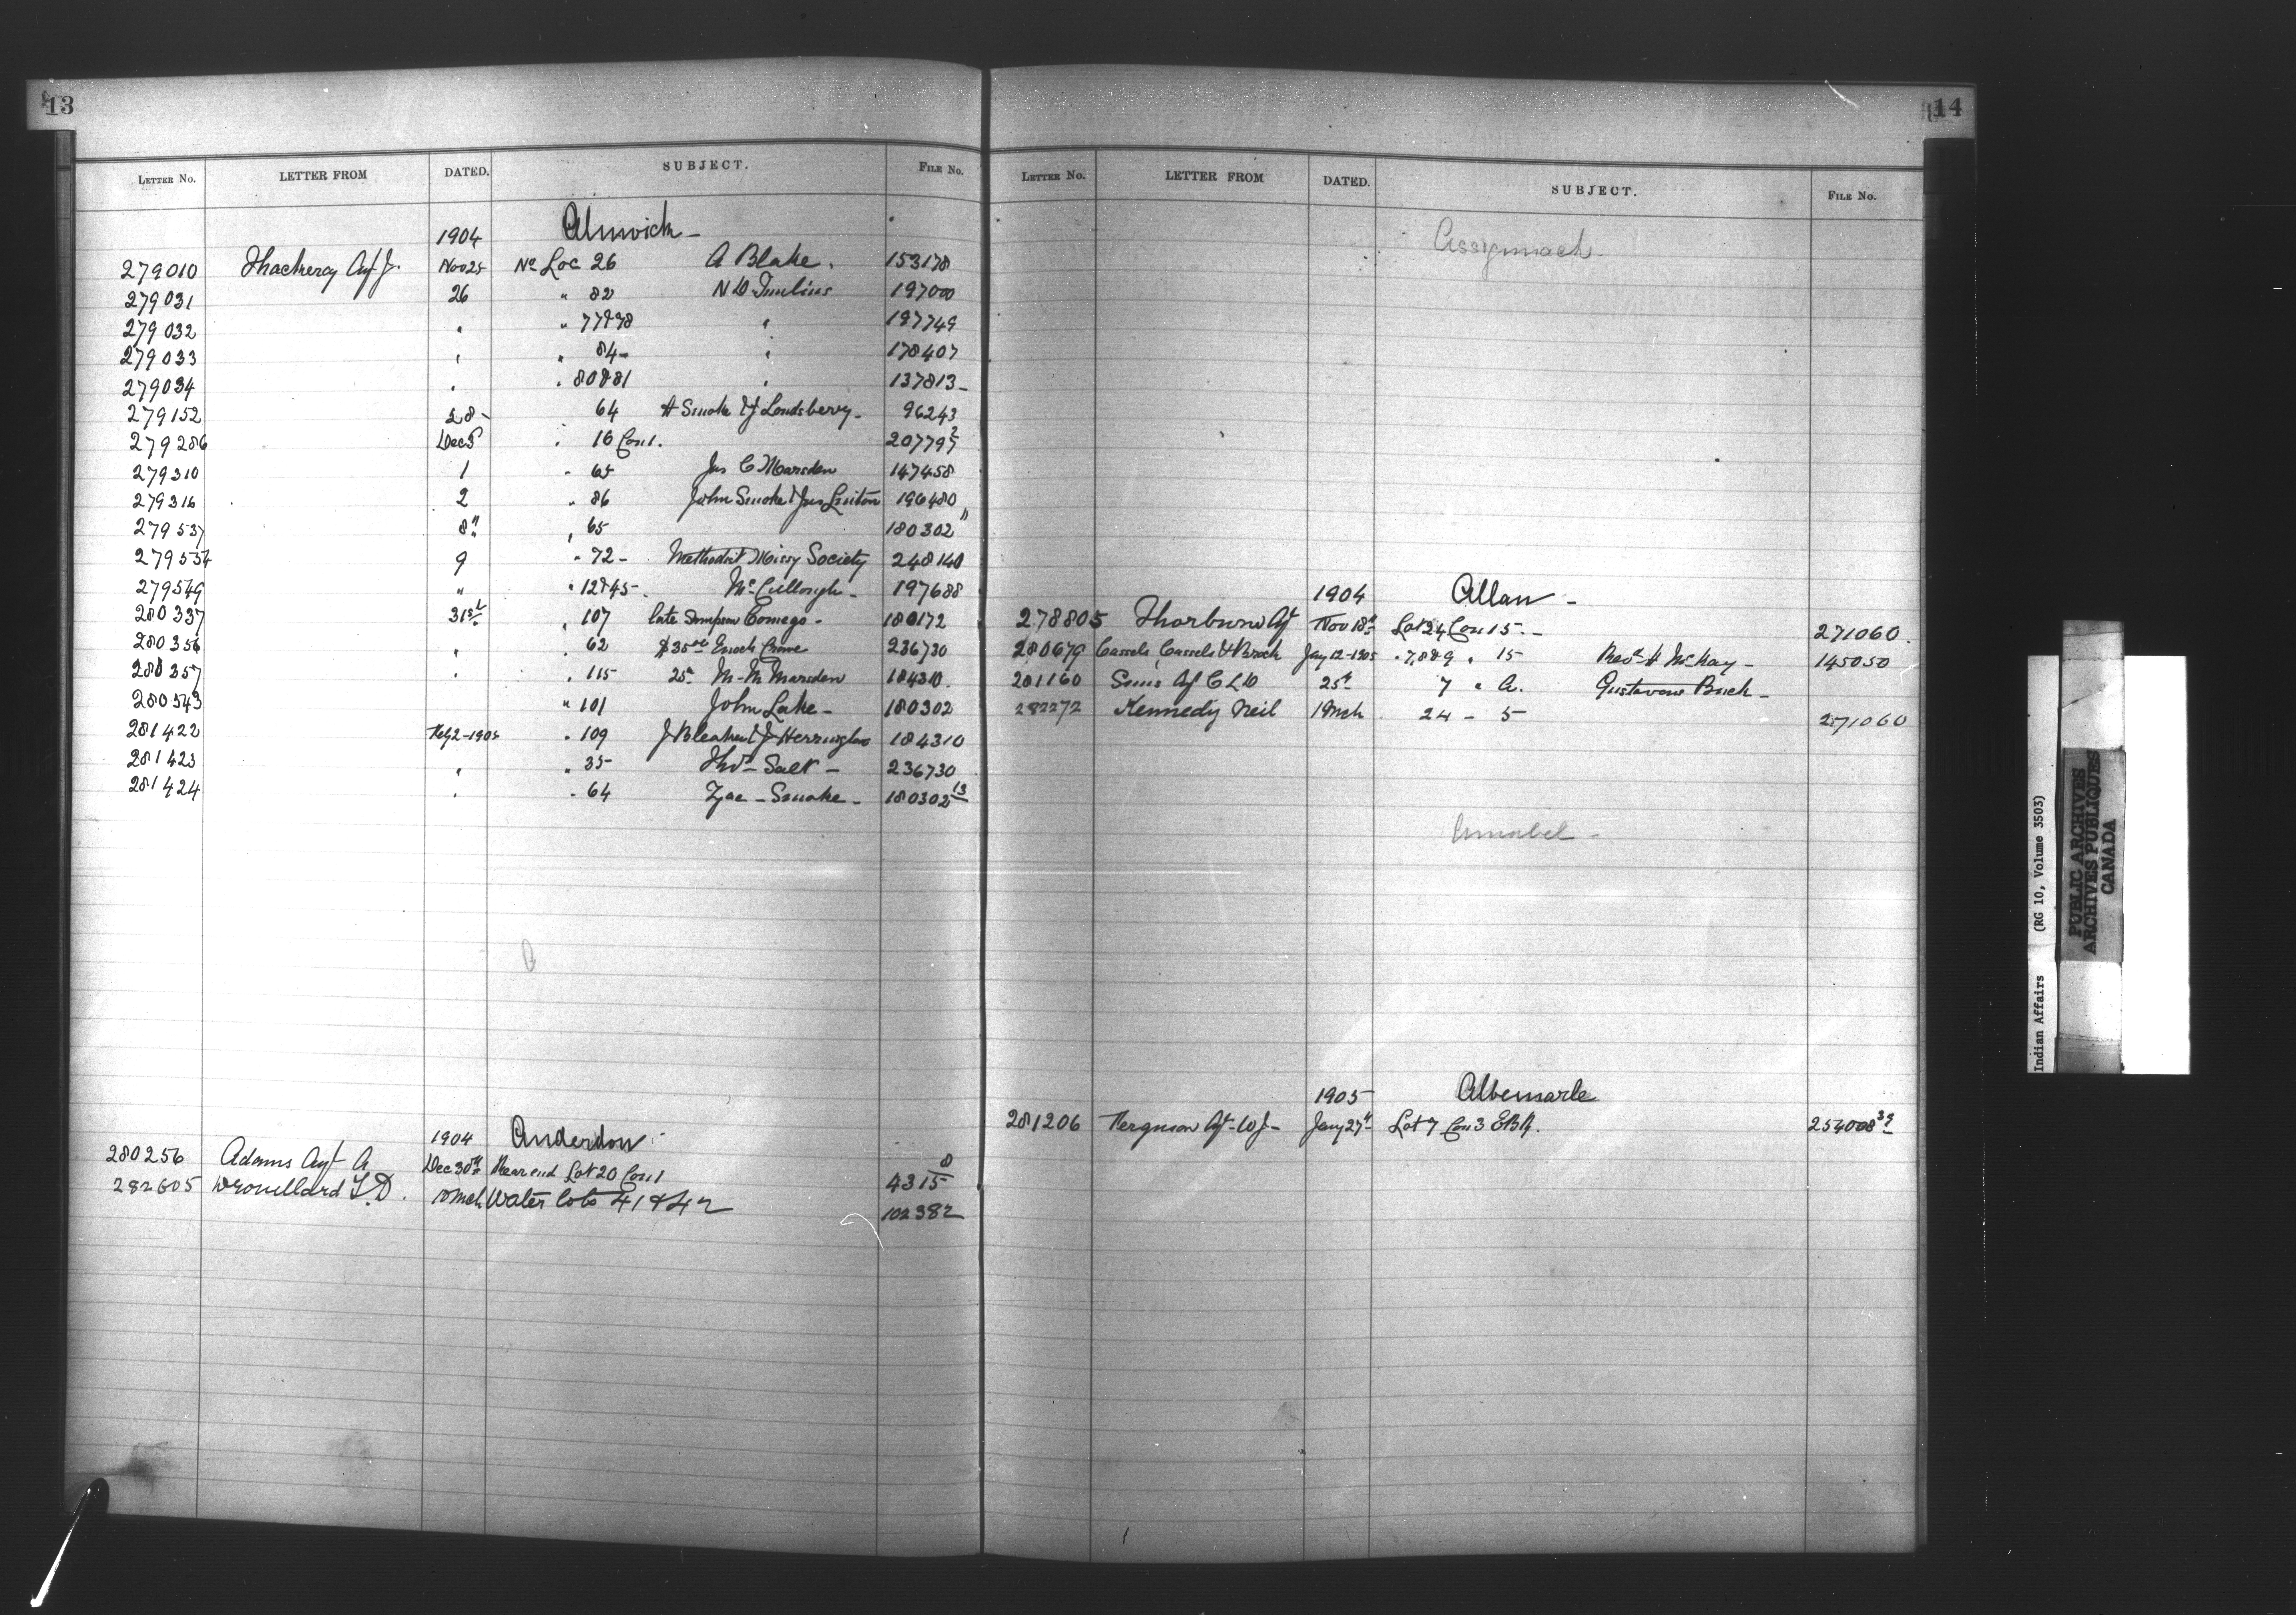 13
LETTER No. LETTER FROM DATED. SUBJECT. FILE No.
1904 Alnwick -
279010 Thackeray Agt J. Nov 25 No Loc 26 A Blake. 153178
279031 26 " 82 N W Tumlins 197000
279032 " " 77&78 " 197749
279033 " " 84- " 178407
279034 " " 80&81 " 137813-
279152 28- 64 H Smoke & J Loudsberry- 96243
279286 Dec 5 " 16 Con 1. 207797
279310 1 " 65 Jas C Marsden 147458
279316 2 " 86 John Smoke & Jas Linton 196480
279537 8" " 65 180302"
279554 9 " 72- Methodist Missy Society 248140
279549 " " 12&45- McCullough- 197688
280337 31st " 107 late Simpson Comego- 180172
280356 " " 62 $35 Enoch Crowe 236730
280357 " " 115 25 M-M Marsden 184310.
280543 " 101 John Lake- 180302
281422 Feb 2-1905 " 109 J Bleaker & J Herrington 184310
281423 " " 35 Thos Salt- 236730
281424 " " 64 Zac- Smoke- 180302 13
1904 Anderdon
280256 Adams Agt A Dec 30th Rear end Lot 20 Con 1 4315 8
282605 Drouillard T.D. 10 Mch Water lots 41 & 42 102382
14
LETTER No. LETTER FROM DATED. SUBJECT. FILE No.
Assiginack
1904 Allan -
278805 Thorburn Agt Nov 18th Lot 24 Con 15.- 271060.
280679 Cassels, Cassels & Brock Jany 12-1905 " 7,8&9 " 15 Revd H McKay- 145050
281160 Sims Agt C L D 25th 7 " A. Gustavous Buck-
282272 Kennedy Neil 1 Mch 24 - 5 271060
Amabel -
1905 Albemarle
281206 Ferguson Agt- W J- Jany 27th Lot 7 Con 3 EBR. 254008 39
Indian Affairs (RG 10, Volume 3503)
PUBLIC ARCHIVES
ARCHIVES PUBLIQUES
CANADA